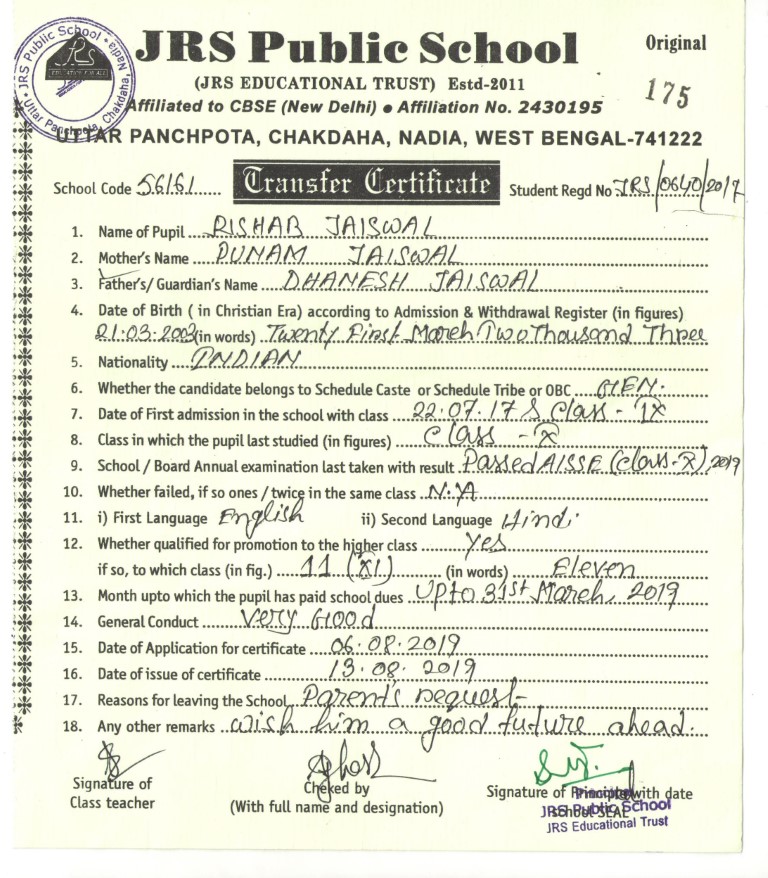 JRS Public School
Original
(JRS EDUCATIONAL TRUST) Estd-2011
175
Affiliated to CBSE (New Delhi) ● Affiliation No. 2430195
UTTAR PANCHPOTA, CHAKDAHA, NADIA, WEST BENGAL-741222
JRS Public School
Uttar Panchpota, Chakdaha, Nadia
JRS
EDUCATION FOR ALL
School Code 56161 Transfer Certificate Student Regd No JRS/0640/2017
1. Name of Pupil RISHAB JAISWAL
2. Mother's Name PUNAM JAISWAL
3. Father's/ Guardian's Name DHANESH JAISWAL
4. Date of Birth ( in Christian Era) according to Admission & Withdrawal Register (in figures)
21.03.2003 (in words) Twenty First March Two Thousand Three
5. Nationality INDIAN
6. Whether the candidate belongs to Schedule Caste or Schedule Tribe or OBC GEN.
7. Date of First admission in the school with class 22.07.17 & Class - IX
8. Class in which the pupil last studied (in figures) Class - X
9. School / Board Annual examination last taken with result Passed AISSE (Class-X), 2019
10. Whether failed, if so ones / twice in the same class N.A
11. i) First Language English ii) Second Language Hindi
12. Whether qualified for promotion to the higher class Yes
if so, to which class (in fig.) 11 (XI) (in words) Eleven
13. Month upto which the pupil has paid school dues Upto 31st March, 2019
14. General Conduct Very Good
15. Date of Application for certificate 06.08.2019
16. Date of issue of certificate 13.08.2019
17. Reasons for leaving the School Parent's request
18. Any other remarks wish him a good future ahead.
Signature of Class teacher
Cheked by
(With full name and designation)
Signature of Principal with date
School SEAL
Principal
JRS Public School
JRS Educational Trust